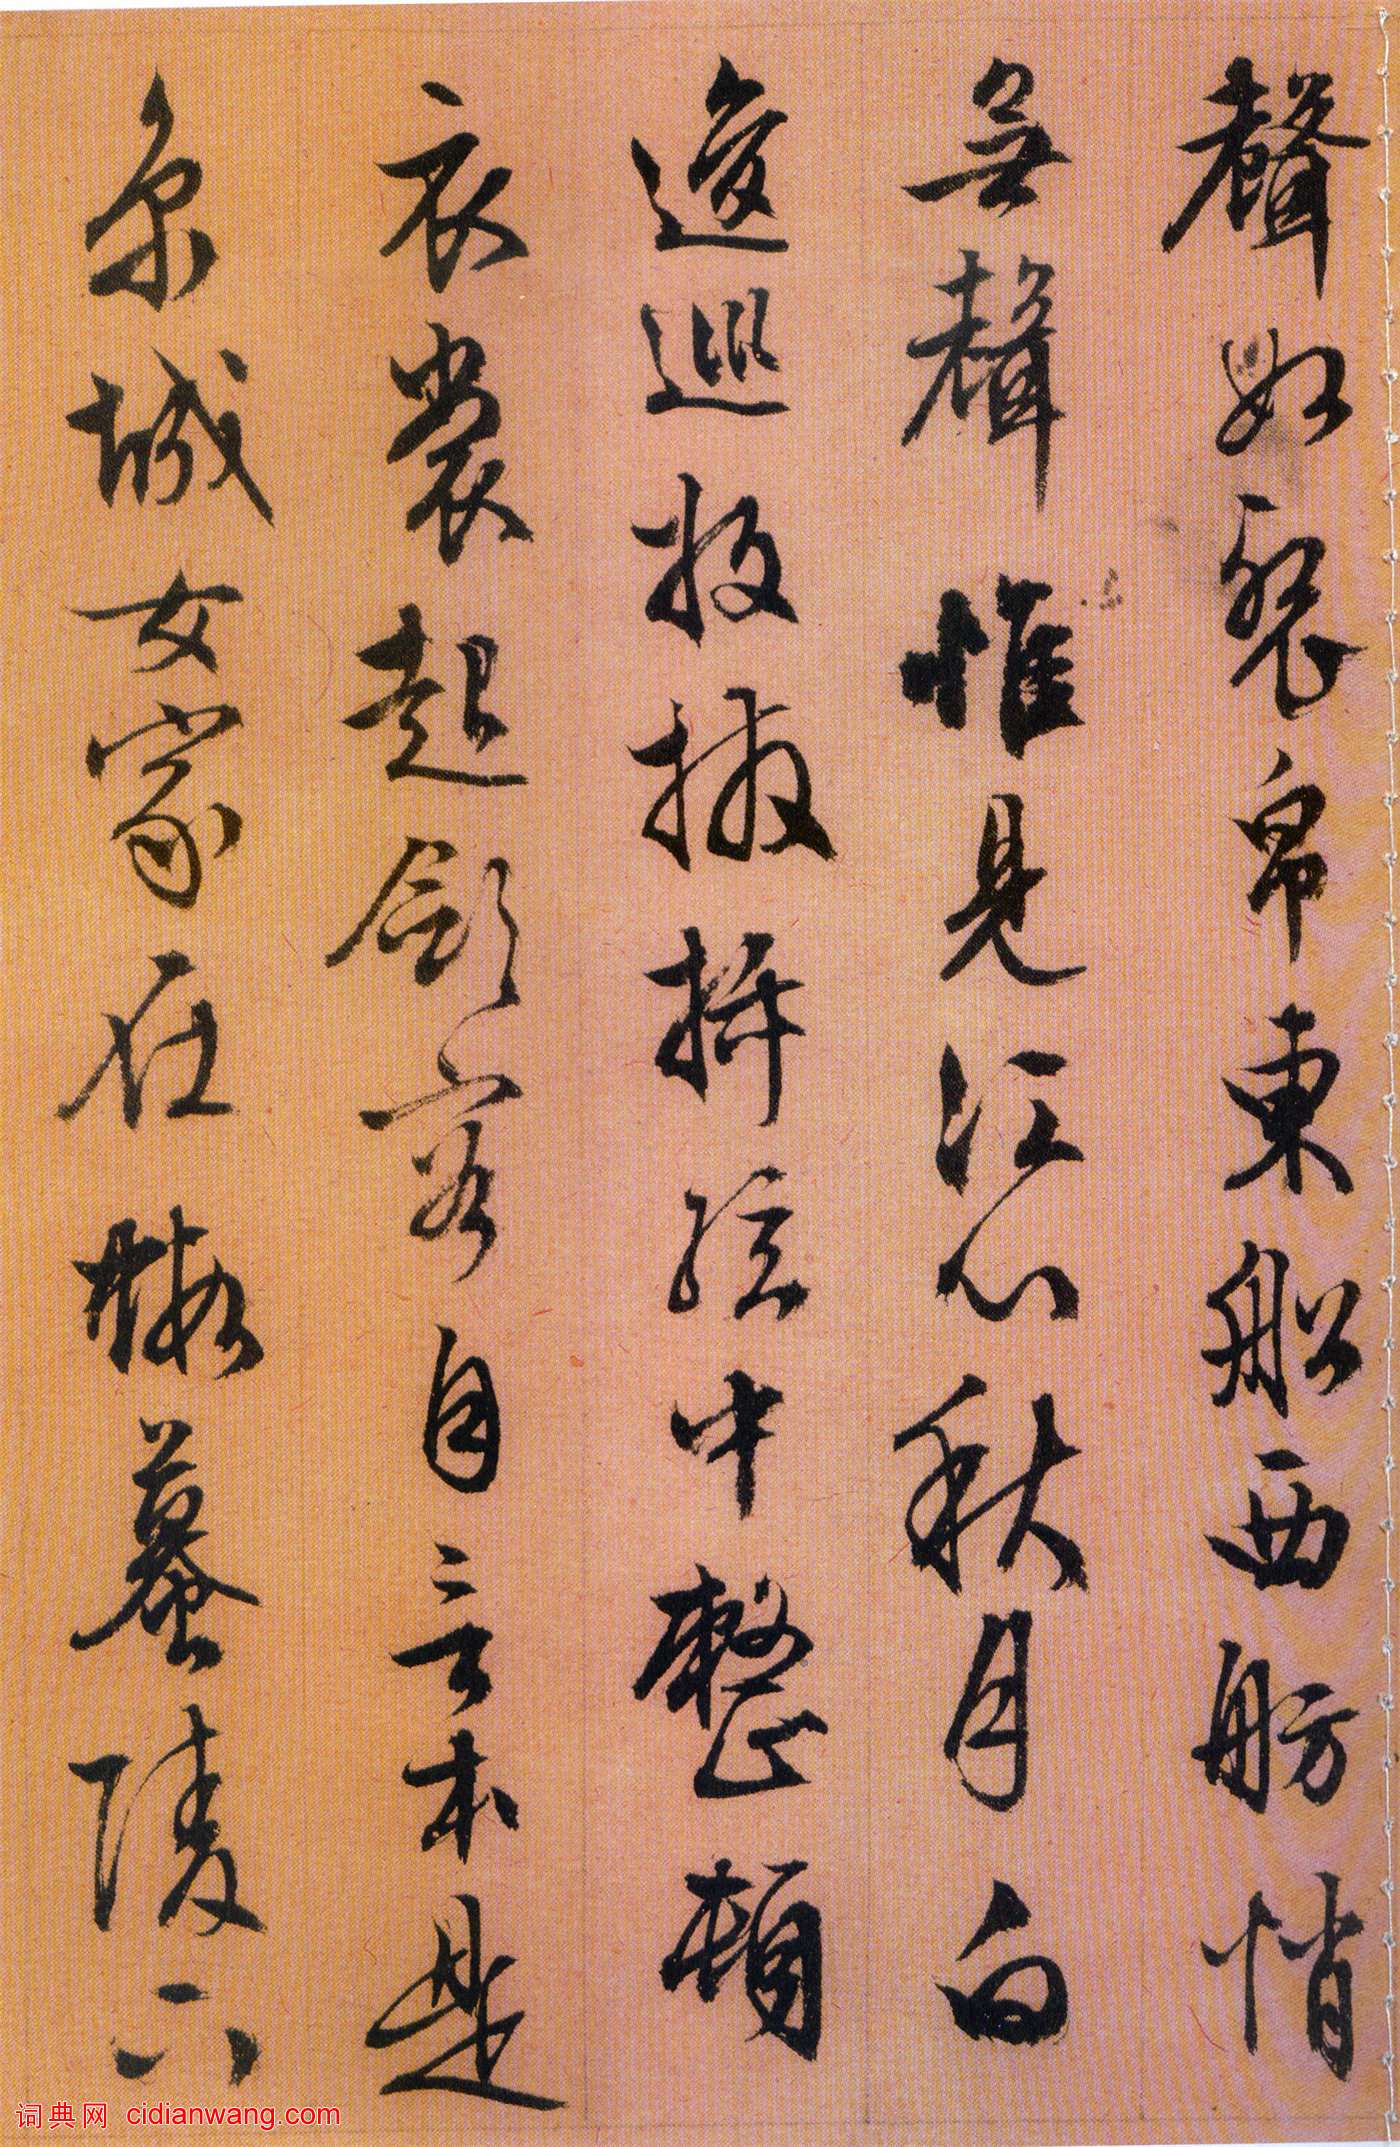 聲如裂帛東船西舫悄
無聲惟見江心秋月白
逡巡撥插絃中整頓
衣裳起斂容自言本是
京城女家在蝦蟇陵下
词典网 cidianwang.com